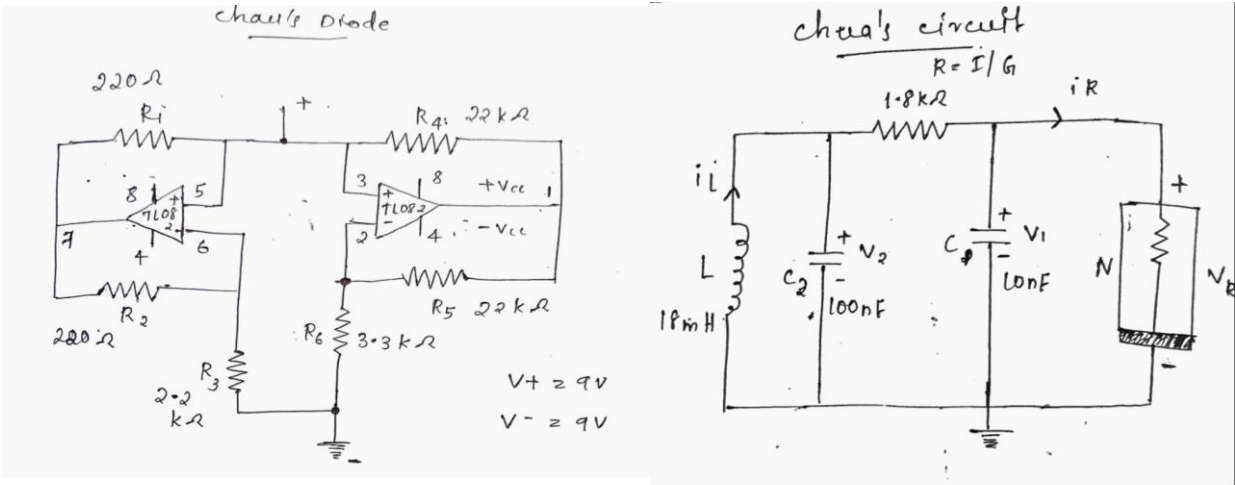 Chau's Diode
220Ω
R1
+
R4 22kΩ
8
+
5
TL08
7
4
2
6
3
+
TL082
8
+Vcc
1
2
-
4
-Vcc
R2
220Ω
R5 22kΩ
R6 3.3kΩ
R3
2.2
kΩ
V+ = 9V
V- = 9V
-
Chua's circuit
R = I/G
1.8kΩ
iR
iL
+
L
18mH
+
V2
-
C2
100nF
+
V1
-
C1
10nF
N
VR
-